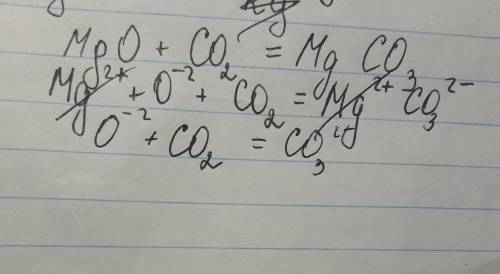 MgO + CO₂ = MgCO₃
Mg²⁺ + O⁻² + CO₂ = Mg²⁺ CO₃²⁻
O⁻² + CO₂ = CO₃²⁻